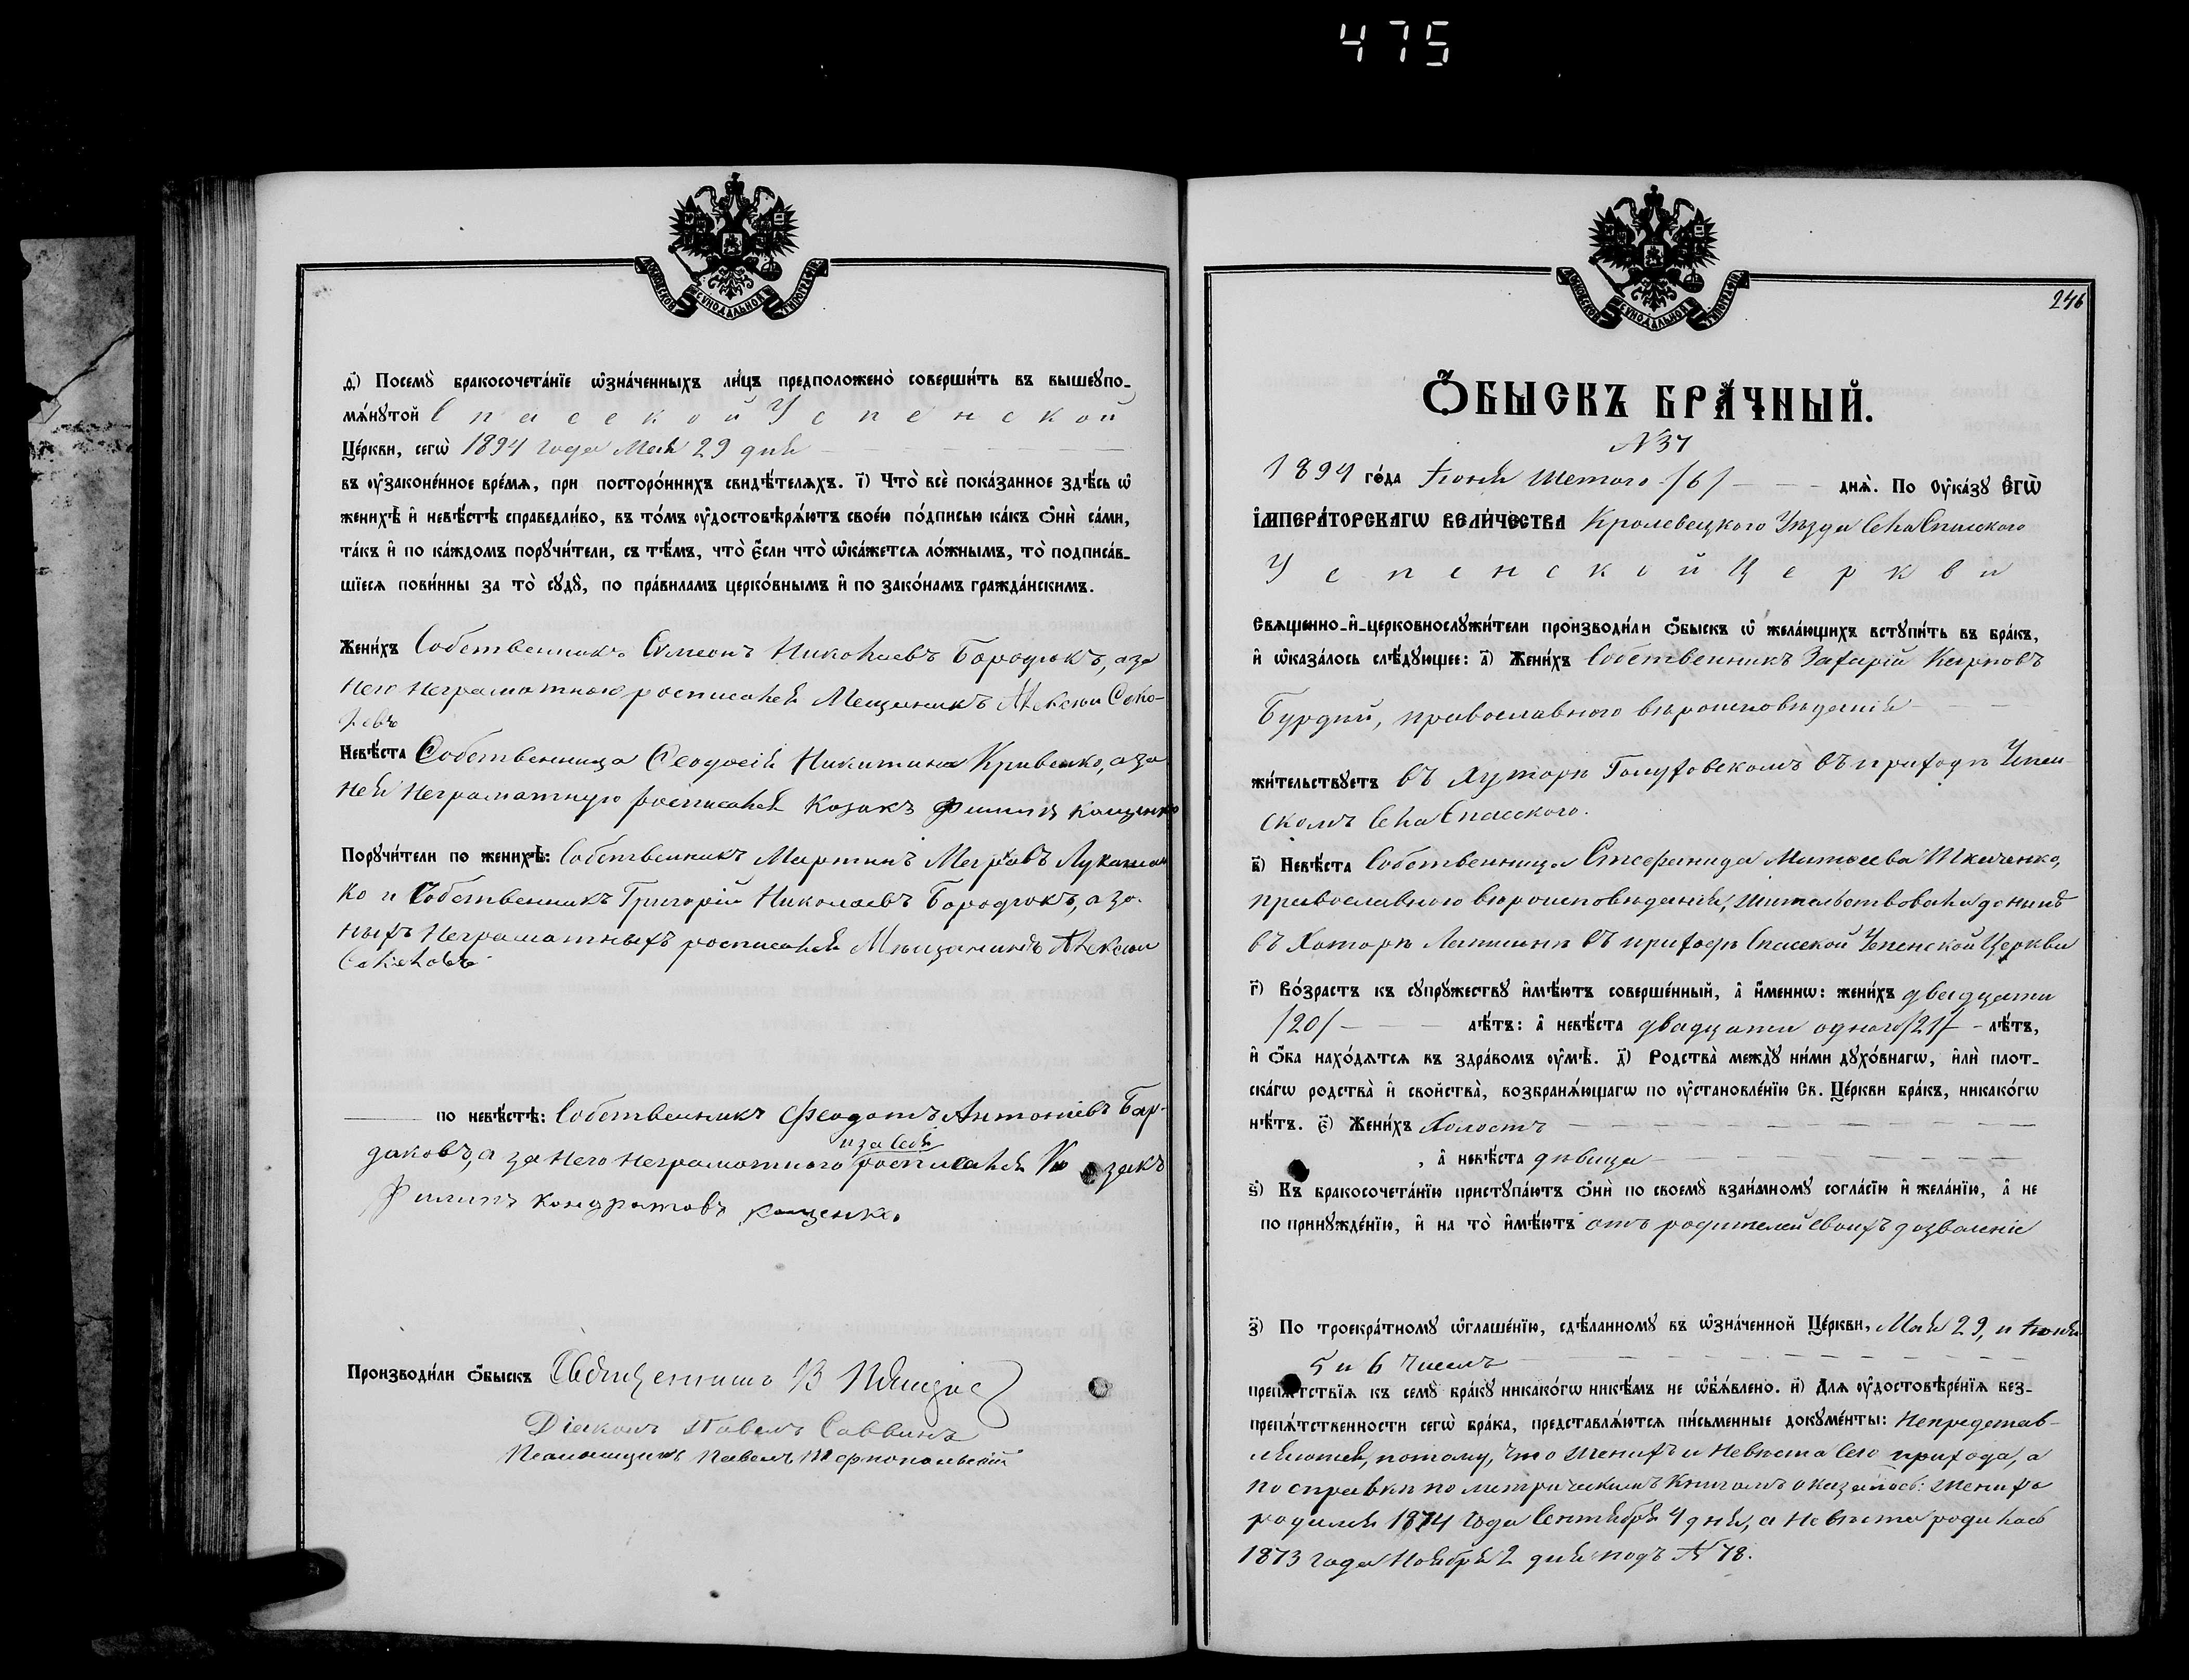 475
МОСКОВСКОЙ СѴНОДАЛЬНОЙ ТИПОГРАФІИ.
ѳ҃) Посемꙋ̀ бракосочета́нїе ѡ҆зна́ченныхъ ли́цъ предположено̀ соверши́ть въ вышеꙋпо-
мѧ́нꙋтой Спасской Успенской
Це́ркви, сегѡ̀ 1894 года Мая 29 дня
въ ᲂу҆законе́нное вре́мѧ, при посторо́ннихъ свидѣ́телѧхъ. і҃) Что̀ всѐ пока́занное здѣ́сь ѡ҆
женихѣ̀ и҆ невѣ́стѣ справедли́во, въ то́мъ ᲂу҆достовѣрѧ́ютъ свое́ю по́дписью ка́къ ѻ҆нѝ са́ми,
та́къ и҆ по ка́ждомъ порꙋчи́тели, съ тѣ́мъ, что̀ є҆́сли что̀ ѡ҆ка́жетсѧ ло́жнымъ, то̀ подписа́в-
шїесѧ пови́нны за то̀ сꙋдꙋ̀, по пра́виламъ церко́внымъ и҆ по зако́намъ гражда́нскимъ.
Жени́хъ Собственникъ Симеонъ Николаевъ Бородюкъ, а за
него неграмотнаго росписался Мещанинъ Алексѣй Соко-
ловъ
Невѣ́ста Собственница Ѳеодосія Никитина Кривенко, а за
нея неграматную росписался Козакъ Филипъ Кащенко
Порꙋчи́тели по женихѣ̀: Собственникъ Мартинъ Лукашен
ко и Собственникъ Григорій Николаевъ Бородюкъ, а за
ныхъ неграматныхъ росписался Мѣщанинъ Алексѣй
Соколовъ
по невѣ́стѣ: Собственникъ Ѳеодотъ Антоніевъ Бар-
и за себя
даковъ, а за него неграмотнаго росписался Козакъ
Филипъ Кондратовъ Кащенко
Производи́ли ѻ҆́быскъ Священникъ В
Діаконъ Павелъ Саввинъ
Псаломщикъ Павелъ Тернопольскій
МОСКОВСКОЙ СѴНОДАЛЬНОЙ ТИПОГРАФІИ.
246
Ѻ҆́БЫСКЪ БРА́ЧНЫЙ.
№ 37
1894 го́да Іюня Шетого /6/ днѧ̀. По Оу҆ка́зꙋ Є҆ГѠ̀
І҆МПЕРА́ТОРСКАГѠ ВЕЛИ́ЧЕСТВА Кролевецкого Уѣзда Села Спасского
Успенской Церкви
Свѧщенно-и҆-церковнослꙋжи́тели произво́дили ѻ҆́быскъ ѡ҆ жела́ющихъ встꙋпи́ть въ бра́къ,
и҆ ѡ҆каза́лось слѣ́дꙋющее: а҃) Жени́хъ Собственникъ Захарій Карповъ
Бурдий, православного вѣроисповѣданія
жи́тельствꙋетъ въ Хуторѣ въ приходѣ Успен-
скомъ Села Спасского.
в҃) Невѣ́ста Собственница Стефанида Матѳеева Ткаченко,
православного вѣроисповѣданія, жительствовала донинѣ
въ Хоторѣ въ приходѣ Спасской Успенской Церкви
г҃) Во́зрастъ къ сꙋпрꙋ́жествꙋ и҆мѣ́ютъ соверше́нный, а҆ и҆́меннѡ: жени́хъ двадцати
/20/ лѣ́тъ: а҆ невѣ́ста двадцати одного /21/ лѣ́тъ,
и҆ ѻ҆́ба нахо́дѧтсѧ въ здра́вомъ ᲂу҆мѣ̀. д҃) Родства̀ междꙋ̀ ни́ми дꙋхо́внагѡ, и҆лѝ плот-
ска́гѡ родства̀ и҆ сво́йства̀, возбранѧ́ющагѡ по ᲂу҆становле́нїю Св. Це́ркви бра́къ, никако́гѡ
нѣ́тъ. є҃) Жени́хъ Холостъ
, а҆ невѣ́ста дѣвица
ѕ҃) Къ бракосочета́нїю пристꙋпа́ютъ ѻ҆нѝ по своемꙋ̀ взаи́мномꙋ согла́сїю и҆ жела́нїю, а҆ не
по принꙋжде́нїю, и҆ на то̀ и҆мѣ́ютъ отъ родителей своихъ дозволеніе
з҃) По троекра́тномꙋ ѡ҆глаше́нїю, сдѣ́ланномꙋ въ ѡ҆зна́ченной Це́ркви, Мая 29, и Іюня
5 и 6 Числъ
препѧ́тствїѧ къ семꙋ̀ бра́кꙋ никако́гѡ никѣ́мъ не ѡ҆бъѧ́влено. и҃) Длѧ ᲂу҆достовѣре́нїѧ без-
препѧ́тственности сегѡ̀ бра́ка, представлѧ́ютсѧ пи́сьменные докꙋме́нты: Непредстав-
ляются, потому, что женихъ и невѣста сего прихода, а
по справкѣ по метрическимъ книгамъ оказалось: женихъ
родился 1874 года Сентября 4 дня, а невѣста родилась
1873 года Ноября 2 дня подъ № 78.